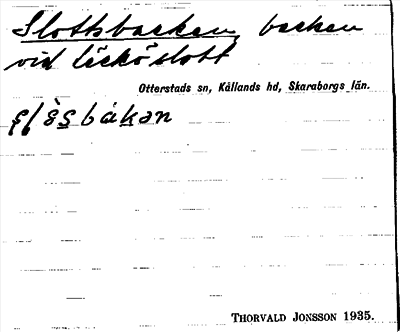 Slottsbacken, backen
vid Läckö slott
Otterstads sn, Kållands hd, Skaraborgs län.
THORVALD JONSSON 1935.